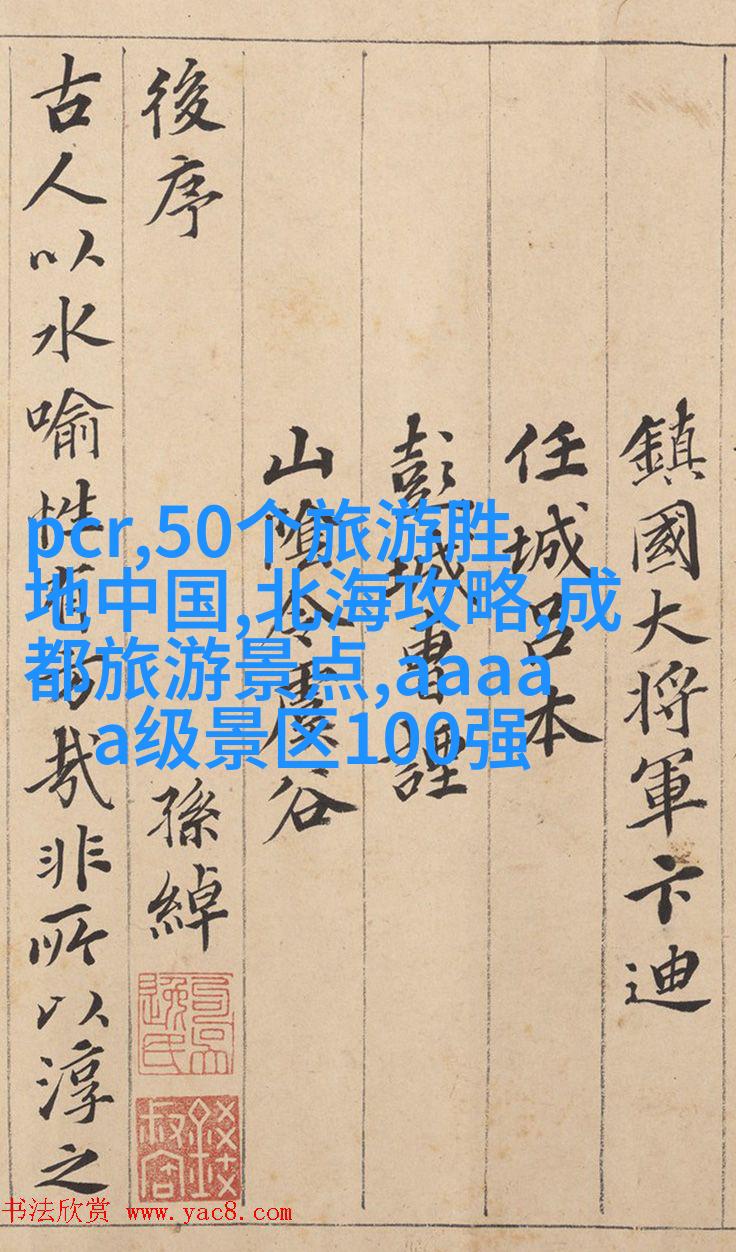 鎮國大将軍卞迪
任城吕本
彭城曹
山陰令虞谷
後序
孫綽
古人以水喻性有旨哉非所以淳之
pcr,50个旅游胜
地中国,北海攻略,成
都旅游景点,aaaa
a级景区100强
书法欣赏 www.yac8.com